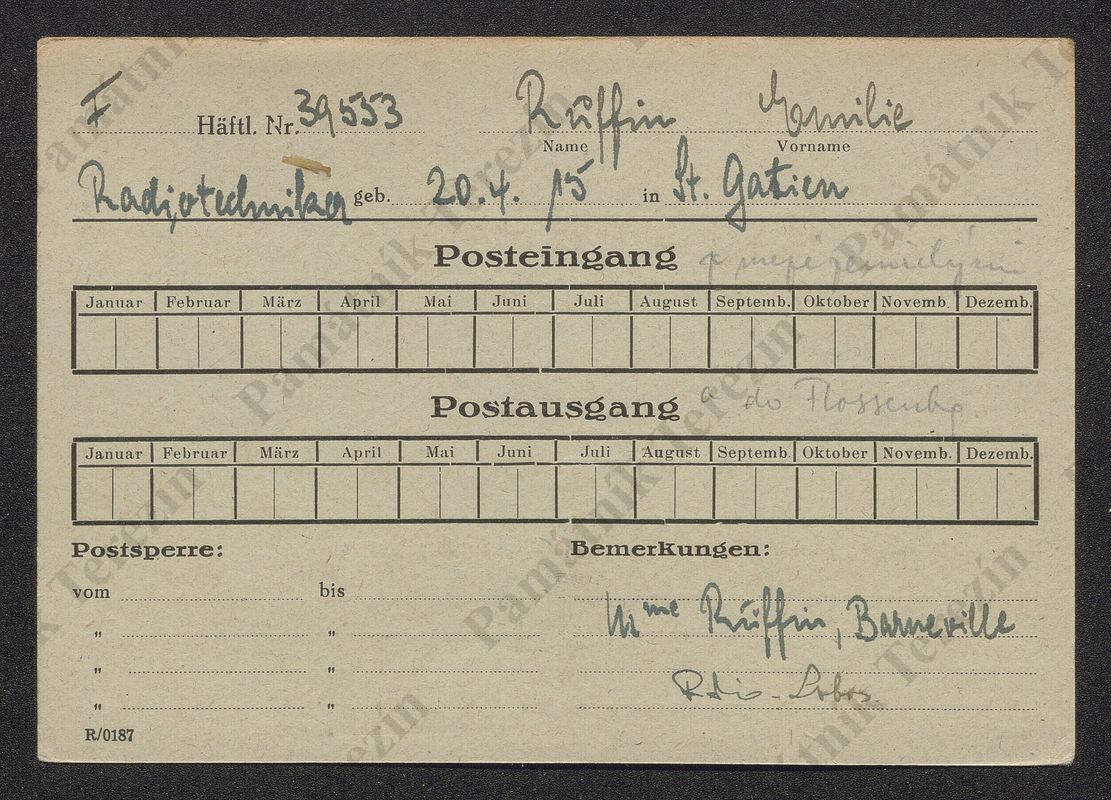 F Häftl. Nr. 39553 Ruffin Emilie
Name Vorname
Radiotechniker geb. 20.4.15 in St. Gatien
Posteingang
Januar Februar März April Mai Juni Juli August Septemb. Oktober Novemb. Dezemb.
Postausgang do Flossenbg.
Januar Februar März April Mai Juni Juli August Septemb. Oktober Novemb. Dezemb.
Postsperre: Bemerkungen:
vom bis
" " Mme Ruffin, Barneville
" "
" "
R/0187
Památník Terezín